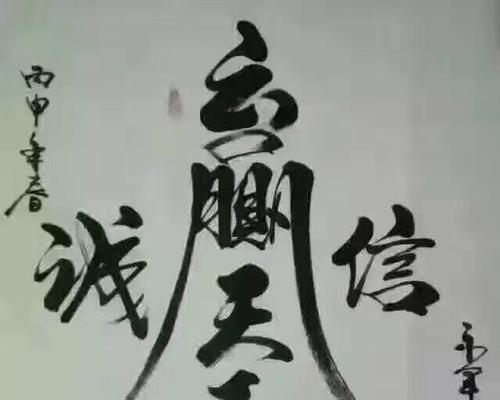 丙申年春
诚信
赢天